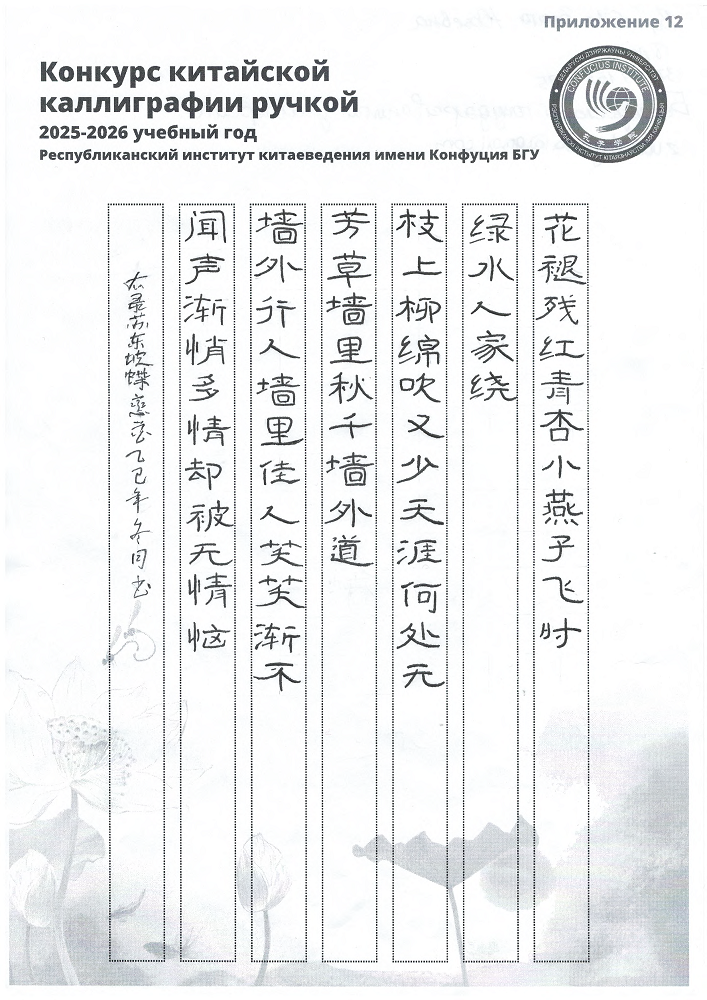 Приложение 12
Конкурс китайской
каллиграфии ручкой
2025-2026 учебный год
Республиканский институт китаеведения имени Конфуция БГУ
CONFUCIUS INSTITUTE
花褪残红青杏小燕子飞时
绿水人家绕
枝上柳绵吹又少天涯何处无
芳草墙里秋千墙外道
墙外行人墙里佳人笑笑渐不
闻声渐悄多情却被无情恼
右录苏东坡蝶恋花乙巳年冬月书